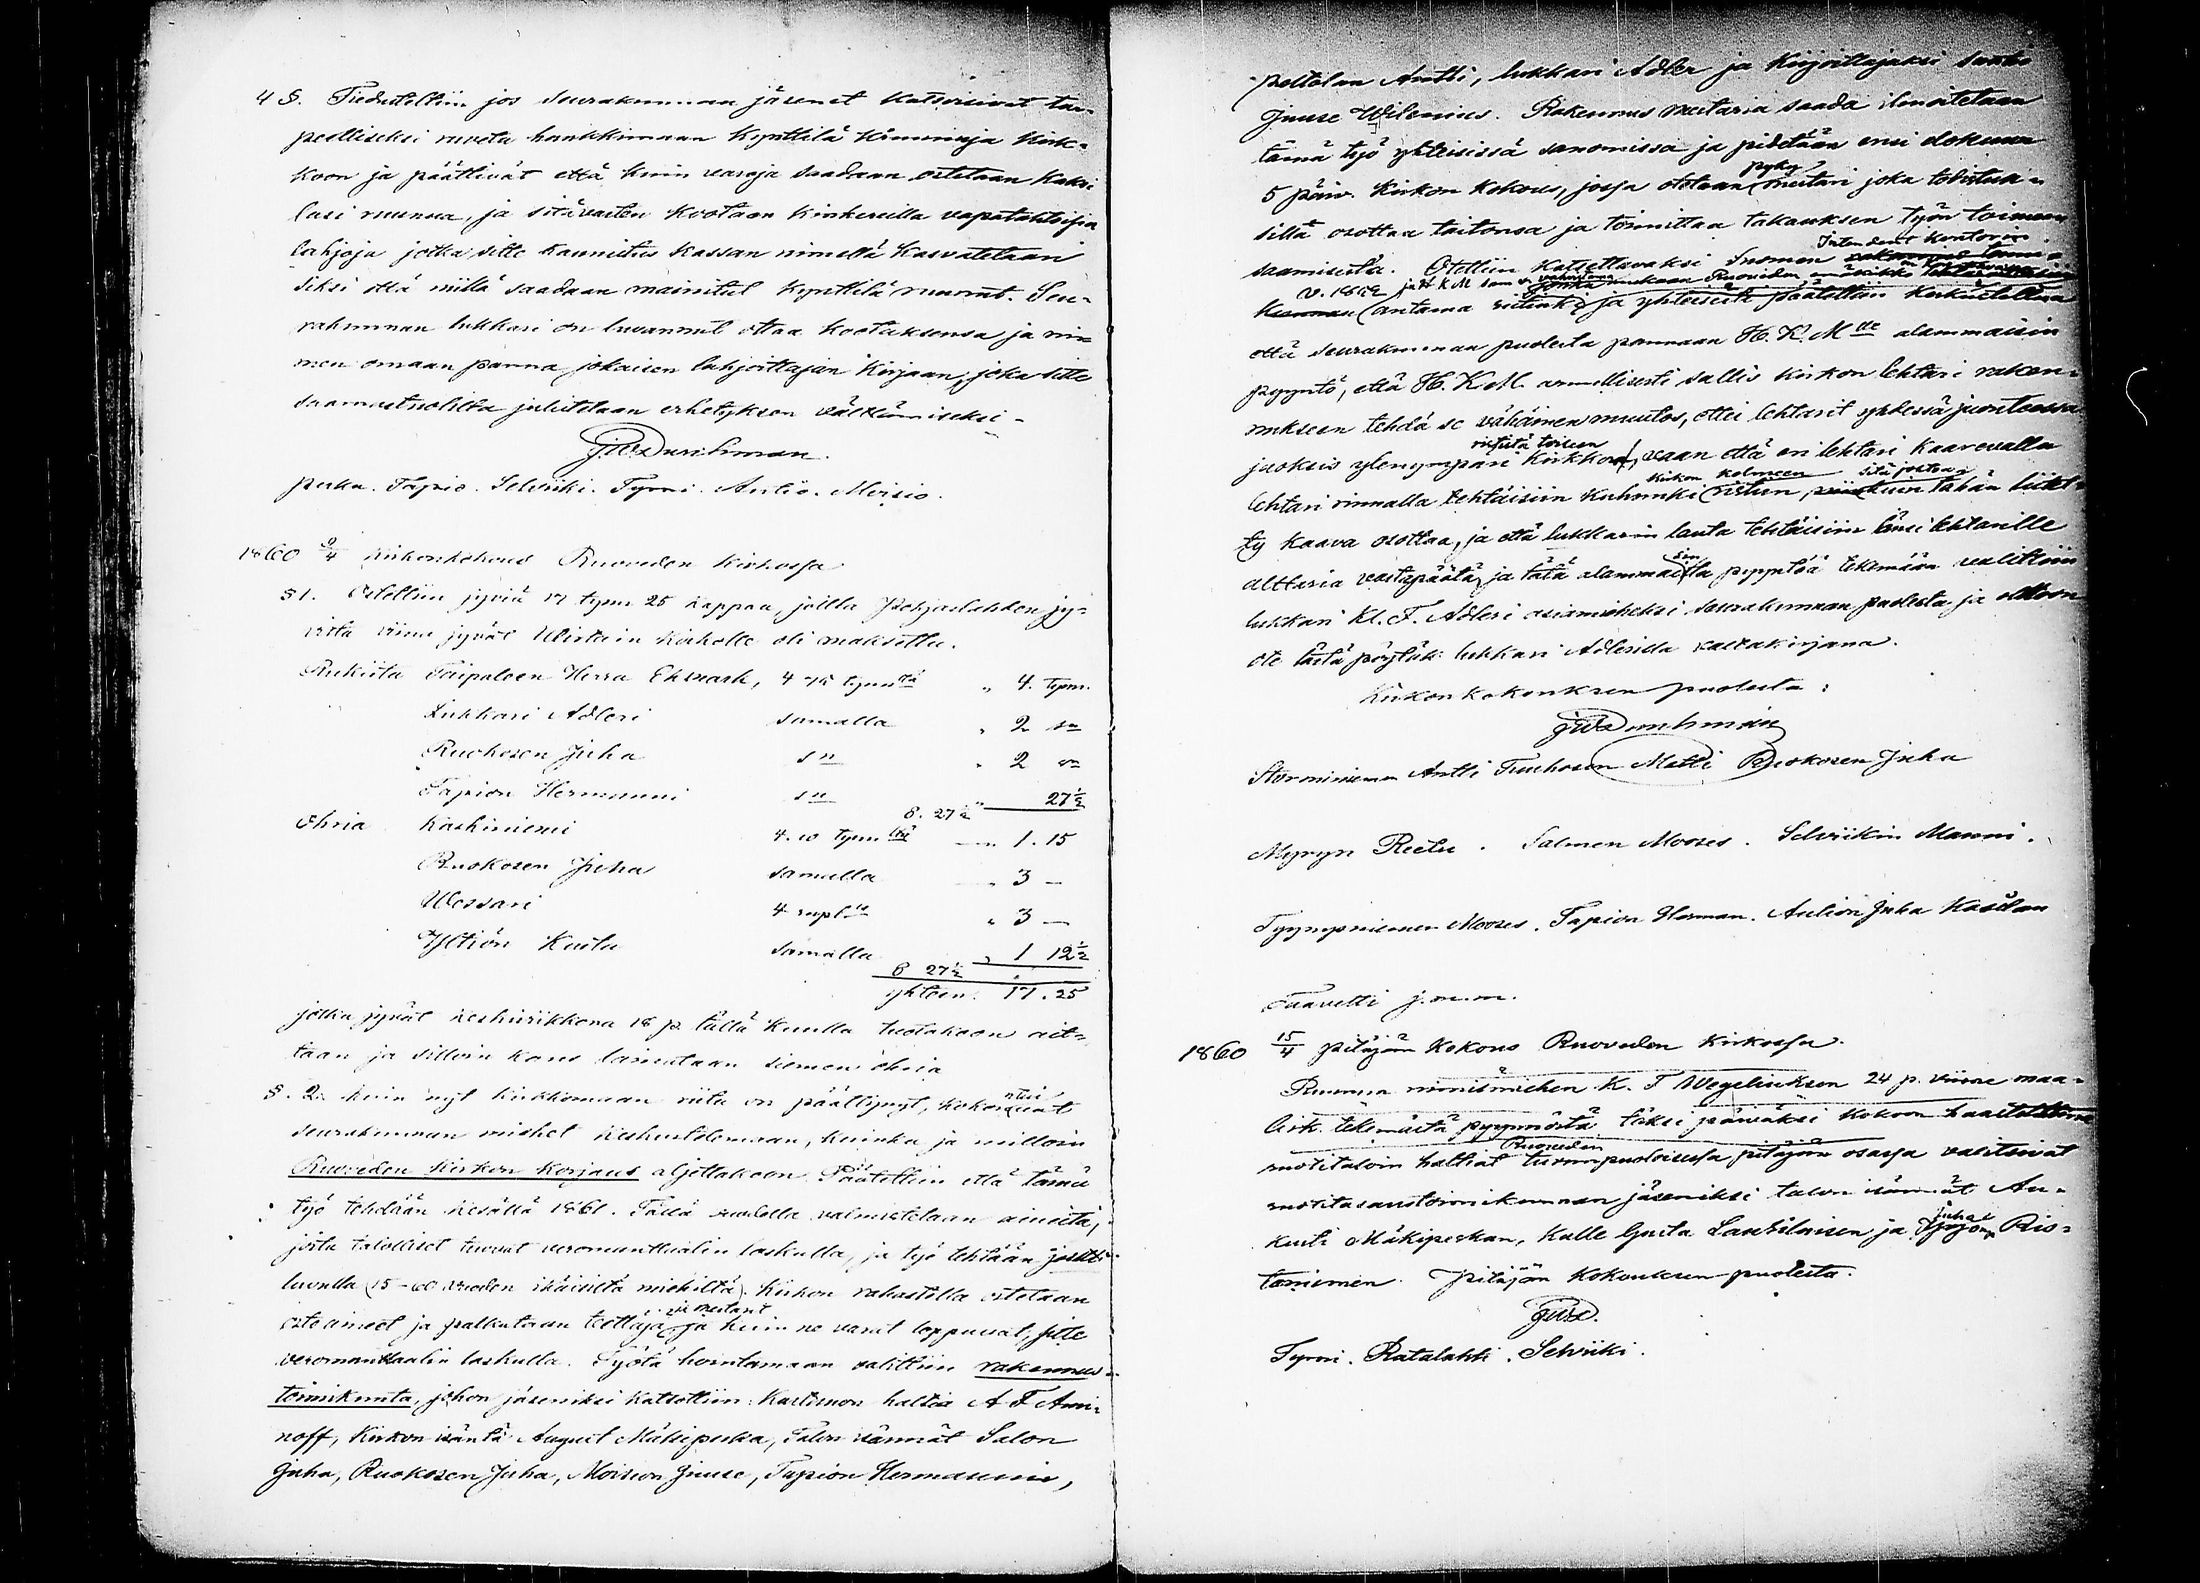 4 §. Tiedusteltiin jos seurakunnan jäsenet katsoisivat tar-
peelliseksi ruveta hankkimaan Kynttilä Kruunuja Kirk-
koon ja päättivät että kuin varoja saadaan ostetaan kaksi
lasi ruunua, ja sitävarten kootaan Kinkereilla vapatahtoisia
lahjoja jotka sitte kaunistus kassan nimellä kasvatetaan
siksi että niillä saadaan mainitut kynttilä ruunut. Seu-
rakunnan lukkari on luvannut ottaa kootaksensa ja nim
men omaan panna jokaisen lahjoittajan Kirjaan, joka sitte
saarnastuolilta julistetaan erhetyksen välttämiseksi -
JW Durchman.
perka. Tapio. Selviiki. Tyrni. Autio. Moisio.
1860 9/4 kirkonkokous Ruoveden kirkossa
§ 1. Ostettiin jyviä 17 tynn 25 kappaa, joilla Pohjaslahden jy-
vistä viime jyvät Wirtain kirkolle oli maksettu.
Rukiita Taipaleen Herra Ehrnark, 4 tynnri „ 4. tynn.
Lukkari Adleri samalla „ 2 sn
Ruokosen Juha sn „ 2 sn
Tapion Hermanni sn 8. 27½ 27½
Ohria Kaskiniemi 4. 10 tynnri „ 1. 15
Ruokosen Juha samalla „ 3 —
Wessari 4 rupl „ 3 —
Yltiön Kusta samalla „ 1 12½
8 27½
yhteen. 17. 25
jotka jyvät keskiviikkona 18 p. tällä kuulla tuotakoon ait-
taan ja silloin kans lainataan siemen ohria
§. 2. Kuin nyt kirkkomaan riita on päättynyt, kokousivat
seurakunnan miehet keskustelemaan, kuinka ja milloin
Ruoveden Kirkon Korjaus aljettakoon. Päätettiin että tämä
työ tehdään kesällä 1861. Tällä vuodella valmistetaan aineita,
joita talolliset tuovat veromanttaalin laskulla, ja työ tehtään
luvulla (15-60 vuoden ikäisiltä miehiltä). Kirkon rahastolla ostetaan
osto aineet ja palkataan teettäjä ja mestarit ja kuin ne varat loppuvat, sitte
veromanttaalin laskulla. Työtä hoitamaan valittiin rakennus-
toimikunta, johon jäseniksi katsottiin: Kartanon haltia A F Ami-
noff, Kirkon isäntä August Mäkiperka, Talon isännät Salon
Juha, Ruokosen Juha, Moision Juuse, Tapion Hermannin,
peltolan Antti, lukkari Adler ja Kirjoittajaksi
Juuse Wilenius. Rakennus mestaria saada ilmoitetaan
tämä työ yhteisissä sanomissa ja pidetään ensi elokuun
5 päiv. Kirkon kokous, jossa otetaan mestari joka todistuk-
silla osottaa taitonsa ja toimittaa takauksen työn toimeen
saamisesta. Otettiin katsottavaksi Suomen Intendent Kontorin
v. 1859 antama ritinki ja yhteisesti päätettiin keskustellessa
että seurakunnan puolesta pannaan H. K. Mlle alammaisin
pyyntö, että H. K. M. armollisesti sallis kirkon lehtari raken-
nukseen tehdä se vähäinen muutos, ettei lehtarit yhdessä juonteessa
juoksis ylenympäri rististä toiseen Kirkkoa, vaan että eri lehtari kaarevalla
lehtari rinnalla tehtäisiin kuhunki Kirkon kolmeen ristiin, sitä josta kuin tähän liitet-
ty kaava osottaa, ja että lukkarin lauta tehtäisiin länsi lehtarille
alttaria vastapäätä, ja tätä alammaista pyyntöä tekemään valittiin
lukkari Kl. F. Adleri asiamieheksi seurakunnan puolesta ja olkoon
ote tästä pöytäk. lukkari Adlerilla valtakirjana.
Kirkonkokouksen puolesta:
JW Durchman
Storminiemen Antti Tuuhosen Matti Ruokosen Juha
Myryn Reetu. Salmen Mooses. Selviikin Manni.
Tyympniemen Mooses. Tapion Herman. Aution Juha Kaidan
Taavetti j. m. m.
1860 15/4 pitäjän Kokous Ruoveden Kirkossa.
Ruunun nimismiehen K. F Wegeliuksen 24 p. viime maa-
lisk. tekemästä pyynnöstä täksi päiväksi kokoon
ruotitaloin haltiat Ruoveden turunpuoleisessa pitäjän osassa valitsivat
ruotitasaustoimikunnan jäseniksi talon isännät Au-
kusti Mäkiperkan, Kalle Gusta Lautilaisen ja Juha Ris-
taniemen. Pitäjän Kokouksen puolesta.
JWD.
Tyrni. Ratalahti. Selviiki.